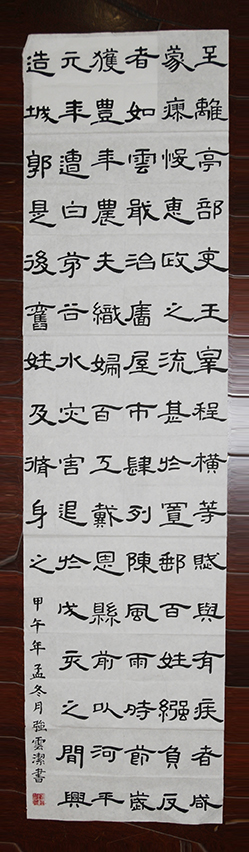 至離亭部吏王皋程橫等賦與有疾者咸
蒙瘳悛惠政之流甚於置郵百姓繈負反
者如雲戢治廧屋市肆列陳風雨時節歲
獲豐年農夫織婦百工戴恩縣前以河平
元年遭白茅谷水灾害退於戊亥之間興
造城郭是後舊姓及脩身之
甲午年孟冬月強雲潔書